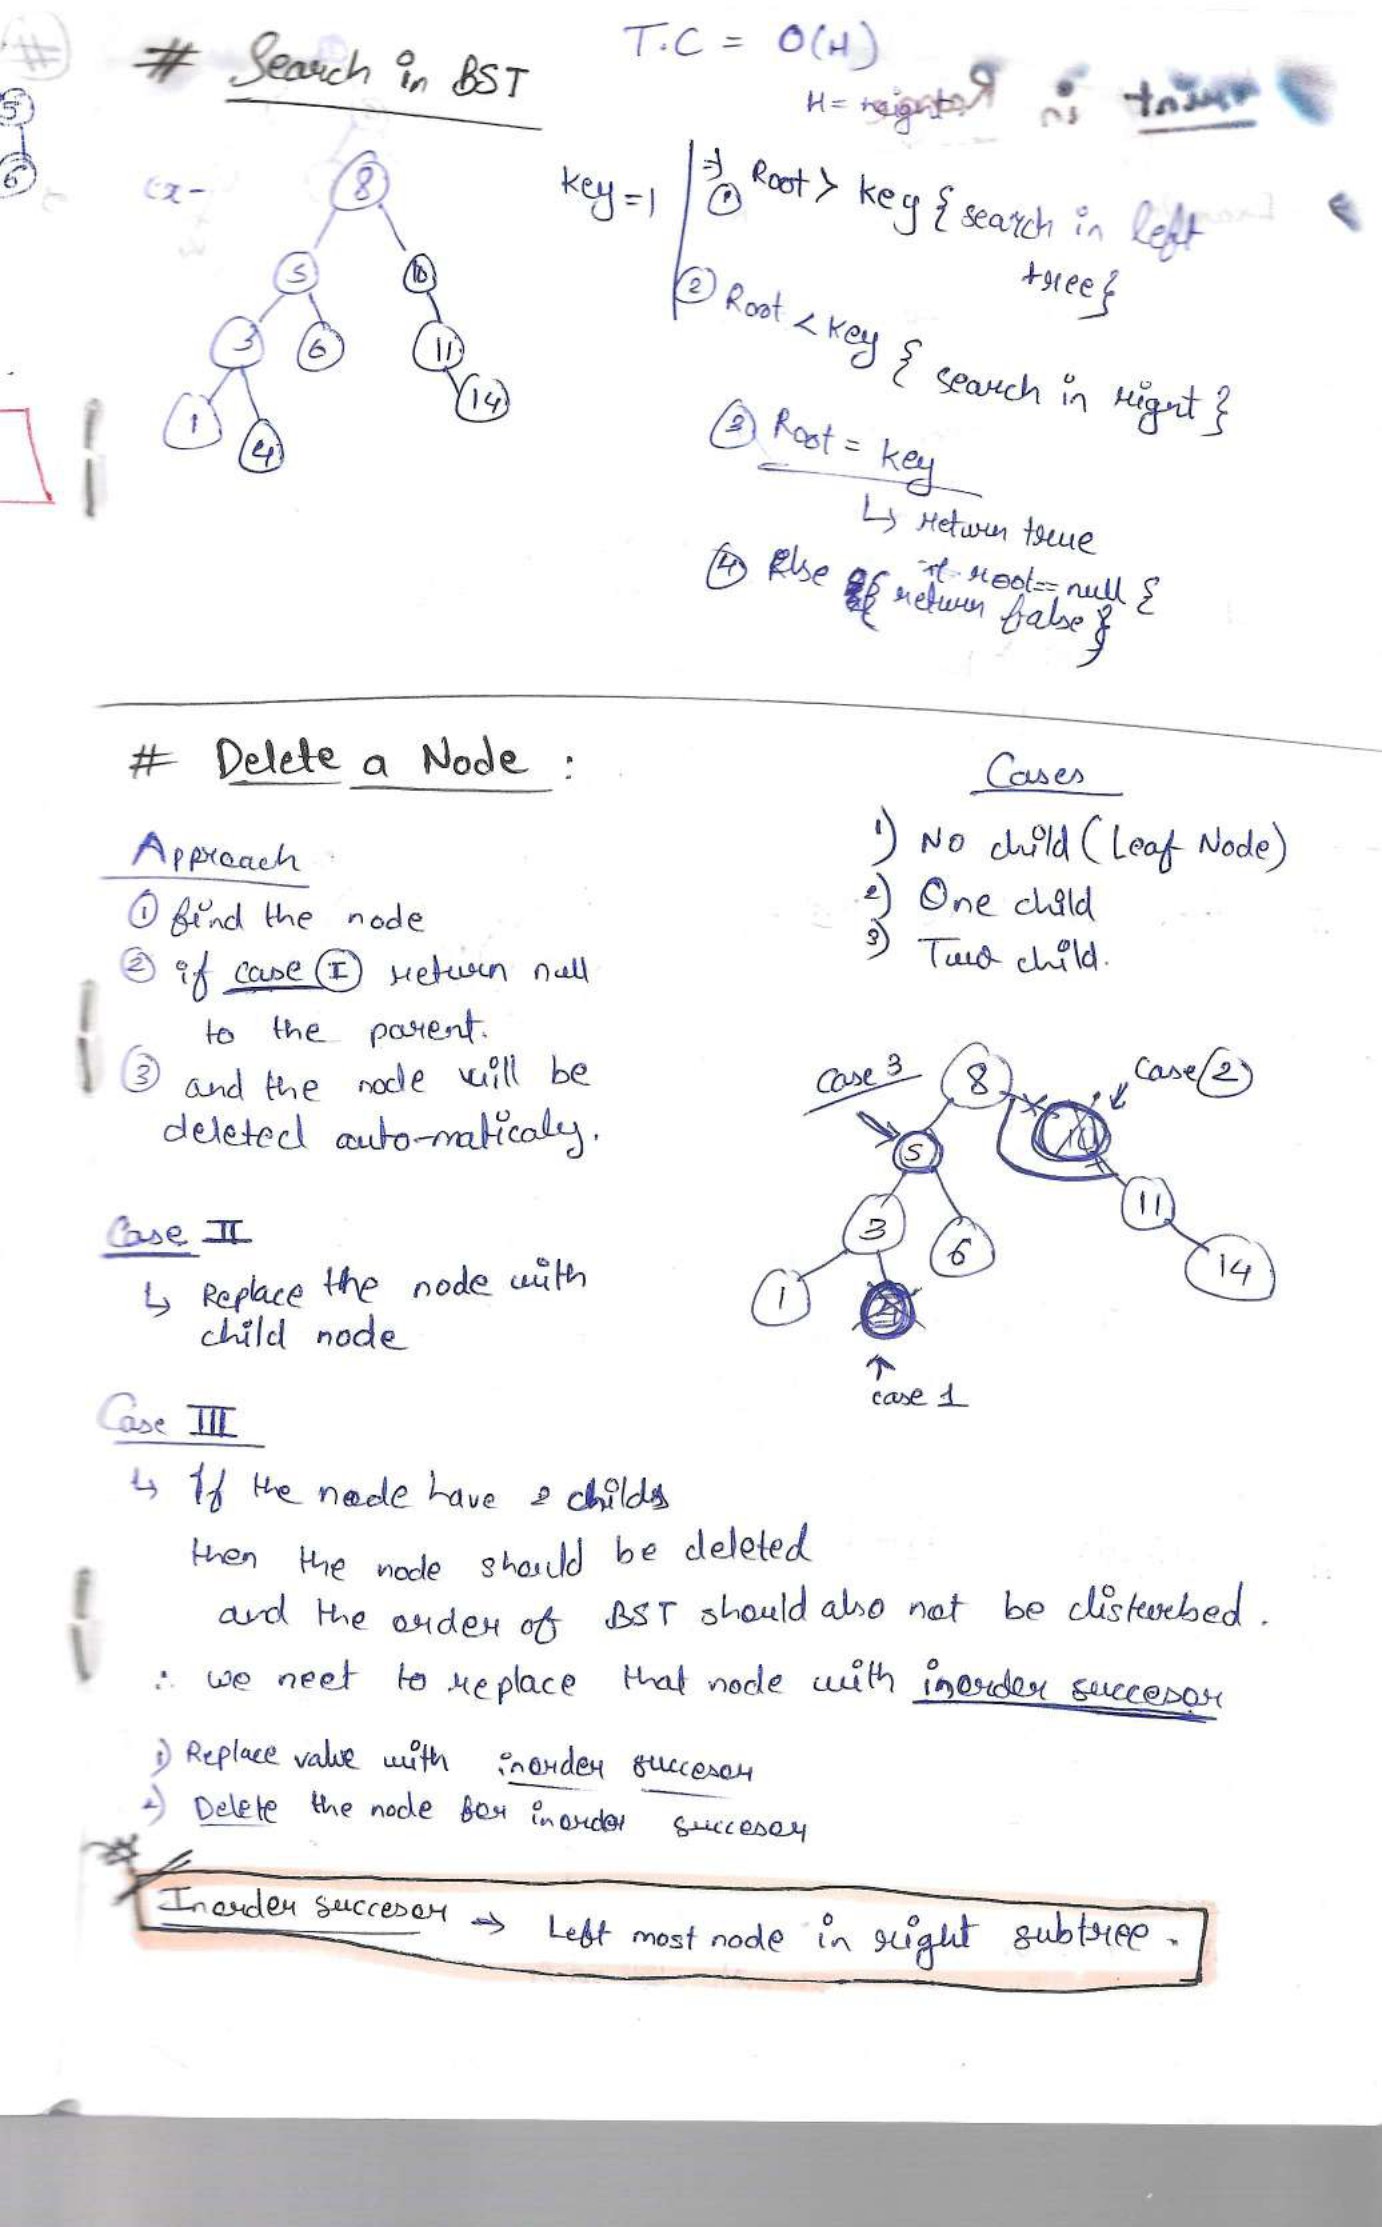 # Search in BST
T.C = O(H)
H = height
Ex-
8
5
10
3
6
11
1
4
14
key = 1
=> ① Root > key { search in left
tree}
② Root < key { search in right }
③ Root = key
↳ return true
④ Else if root == null {
return false }
# Delete a Node :
Approach
① find the node
② if case Ⓘ return null
to the parent.
③ and the node will be
deleted auto-maticaly.
Cases
1) No child (Leaf Node)
2) One child
3) Two child.
Case 3
8
Case ②
5
10
3
6
11
1
4
14
↑
case 1
Case II
↳ Replace the node with
child node
Case III
↳ If the node have 2 childs
then the node should be deleted
and the order of BST should also not be disturbed.
∴ we neet to replace that node with inorder succesor
1) Replace value with inorder succesor
2) Delete the node for inorder succesor
Inorder succesor → Left most node in right subtree.